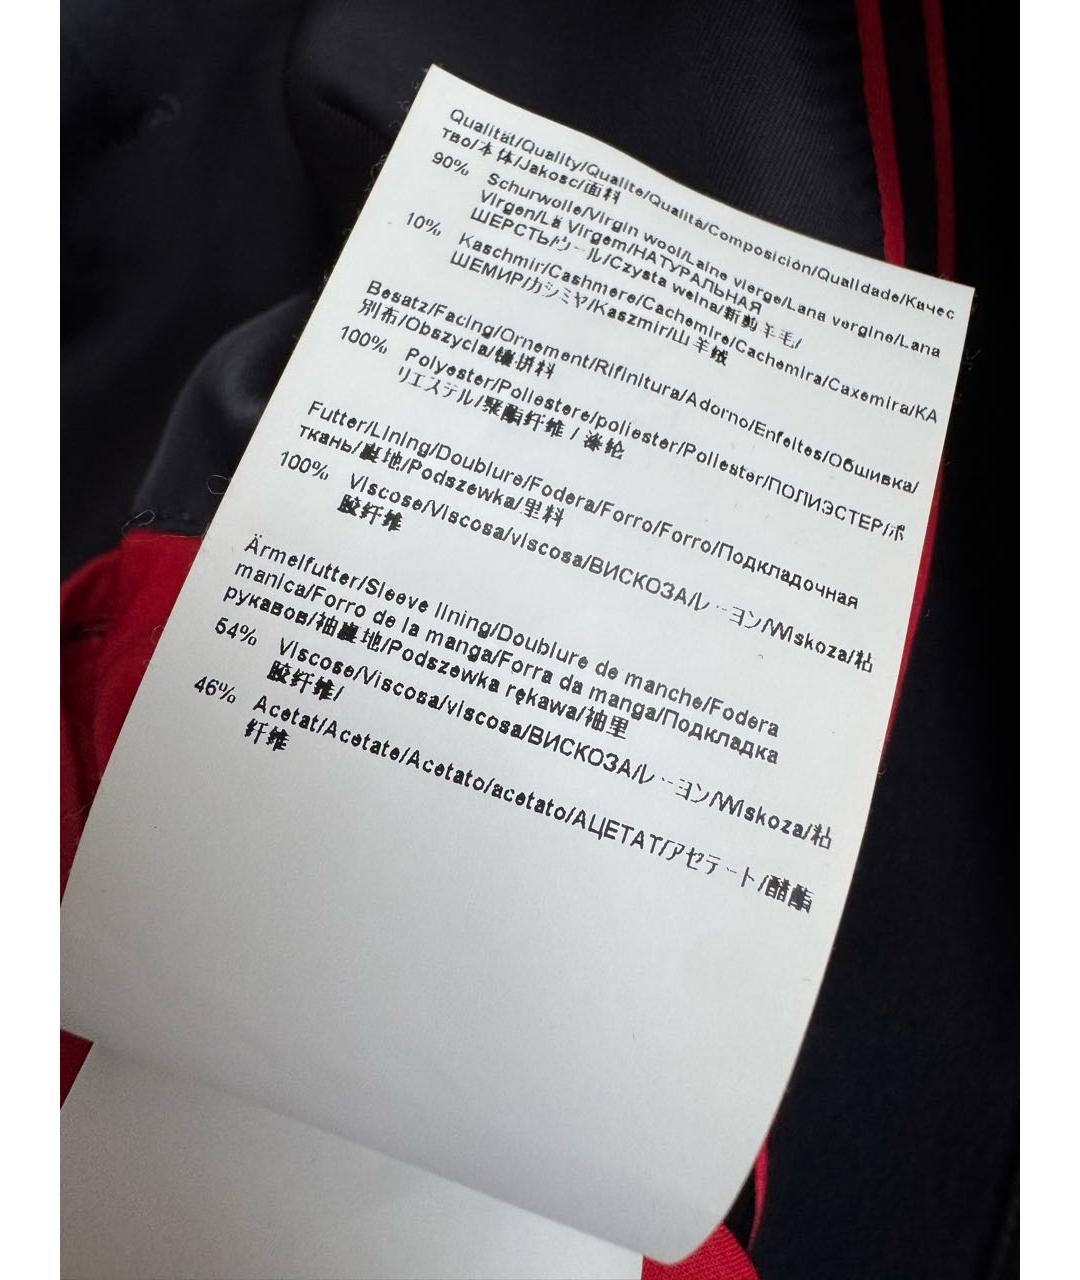 Qualität/Quality/Qualite/Qualità/Composición/Qualidade/Качес
тво/本体/Jakosc/面料
90% Schurwolle/Virgin wool/Laine vierge/Lana vergine/Lana
Virgen/Lã Virgem/НАТУРАЛЬНАЯ
ШЕРСТЬ/ウール/Czysta welna/新剪羊毛/
10% Kaschmir/Cashmere/Cachemire/Cachemira/Caxemira/КА
ШЕМИР/カシミヤ/Kaszmir/山羊绒
Besatz/Facing/Ornement/Rifinitura/Adorno/Enfeites/Обшивка/
別布/Obszycia/镶拼料
100% Polyester/Poliestere/poliester/Poliester/ПОЛИЭСТЕР/ポ
リエステル/聚酯纤维 / 涤纶
Futter/Lining/Doublure/Fodera/Forro/Forro/Подкладочная
ткань/裏地/Podszewka/里料
100% Viscose/Viscosa/viscosa/ВИСКОЗА/レーヨン/Wiskoza/粘
胶纤维
Ärmelfutter/Sleeve lining/Doublure de manche/Fodera
manica/Forro de la manga/Forra da manga/Подкладка
рукавов/袖裏地/Podszewka rękawa/袖里
54% Viscose/Viscosa/viscosa/ВИСКОЗА/レーヨン/Wiskoza/粘
胶纤维/
46% Acetat/Acetate/Acetato/acetato/АЦЕТАТ/アセテート/醋酯
纤维